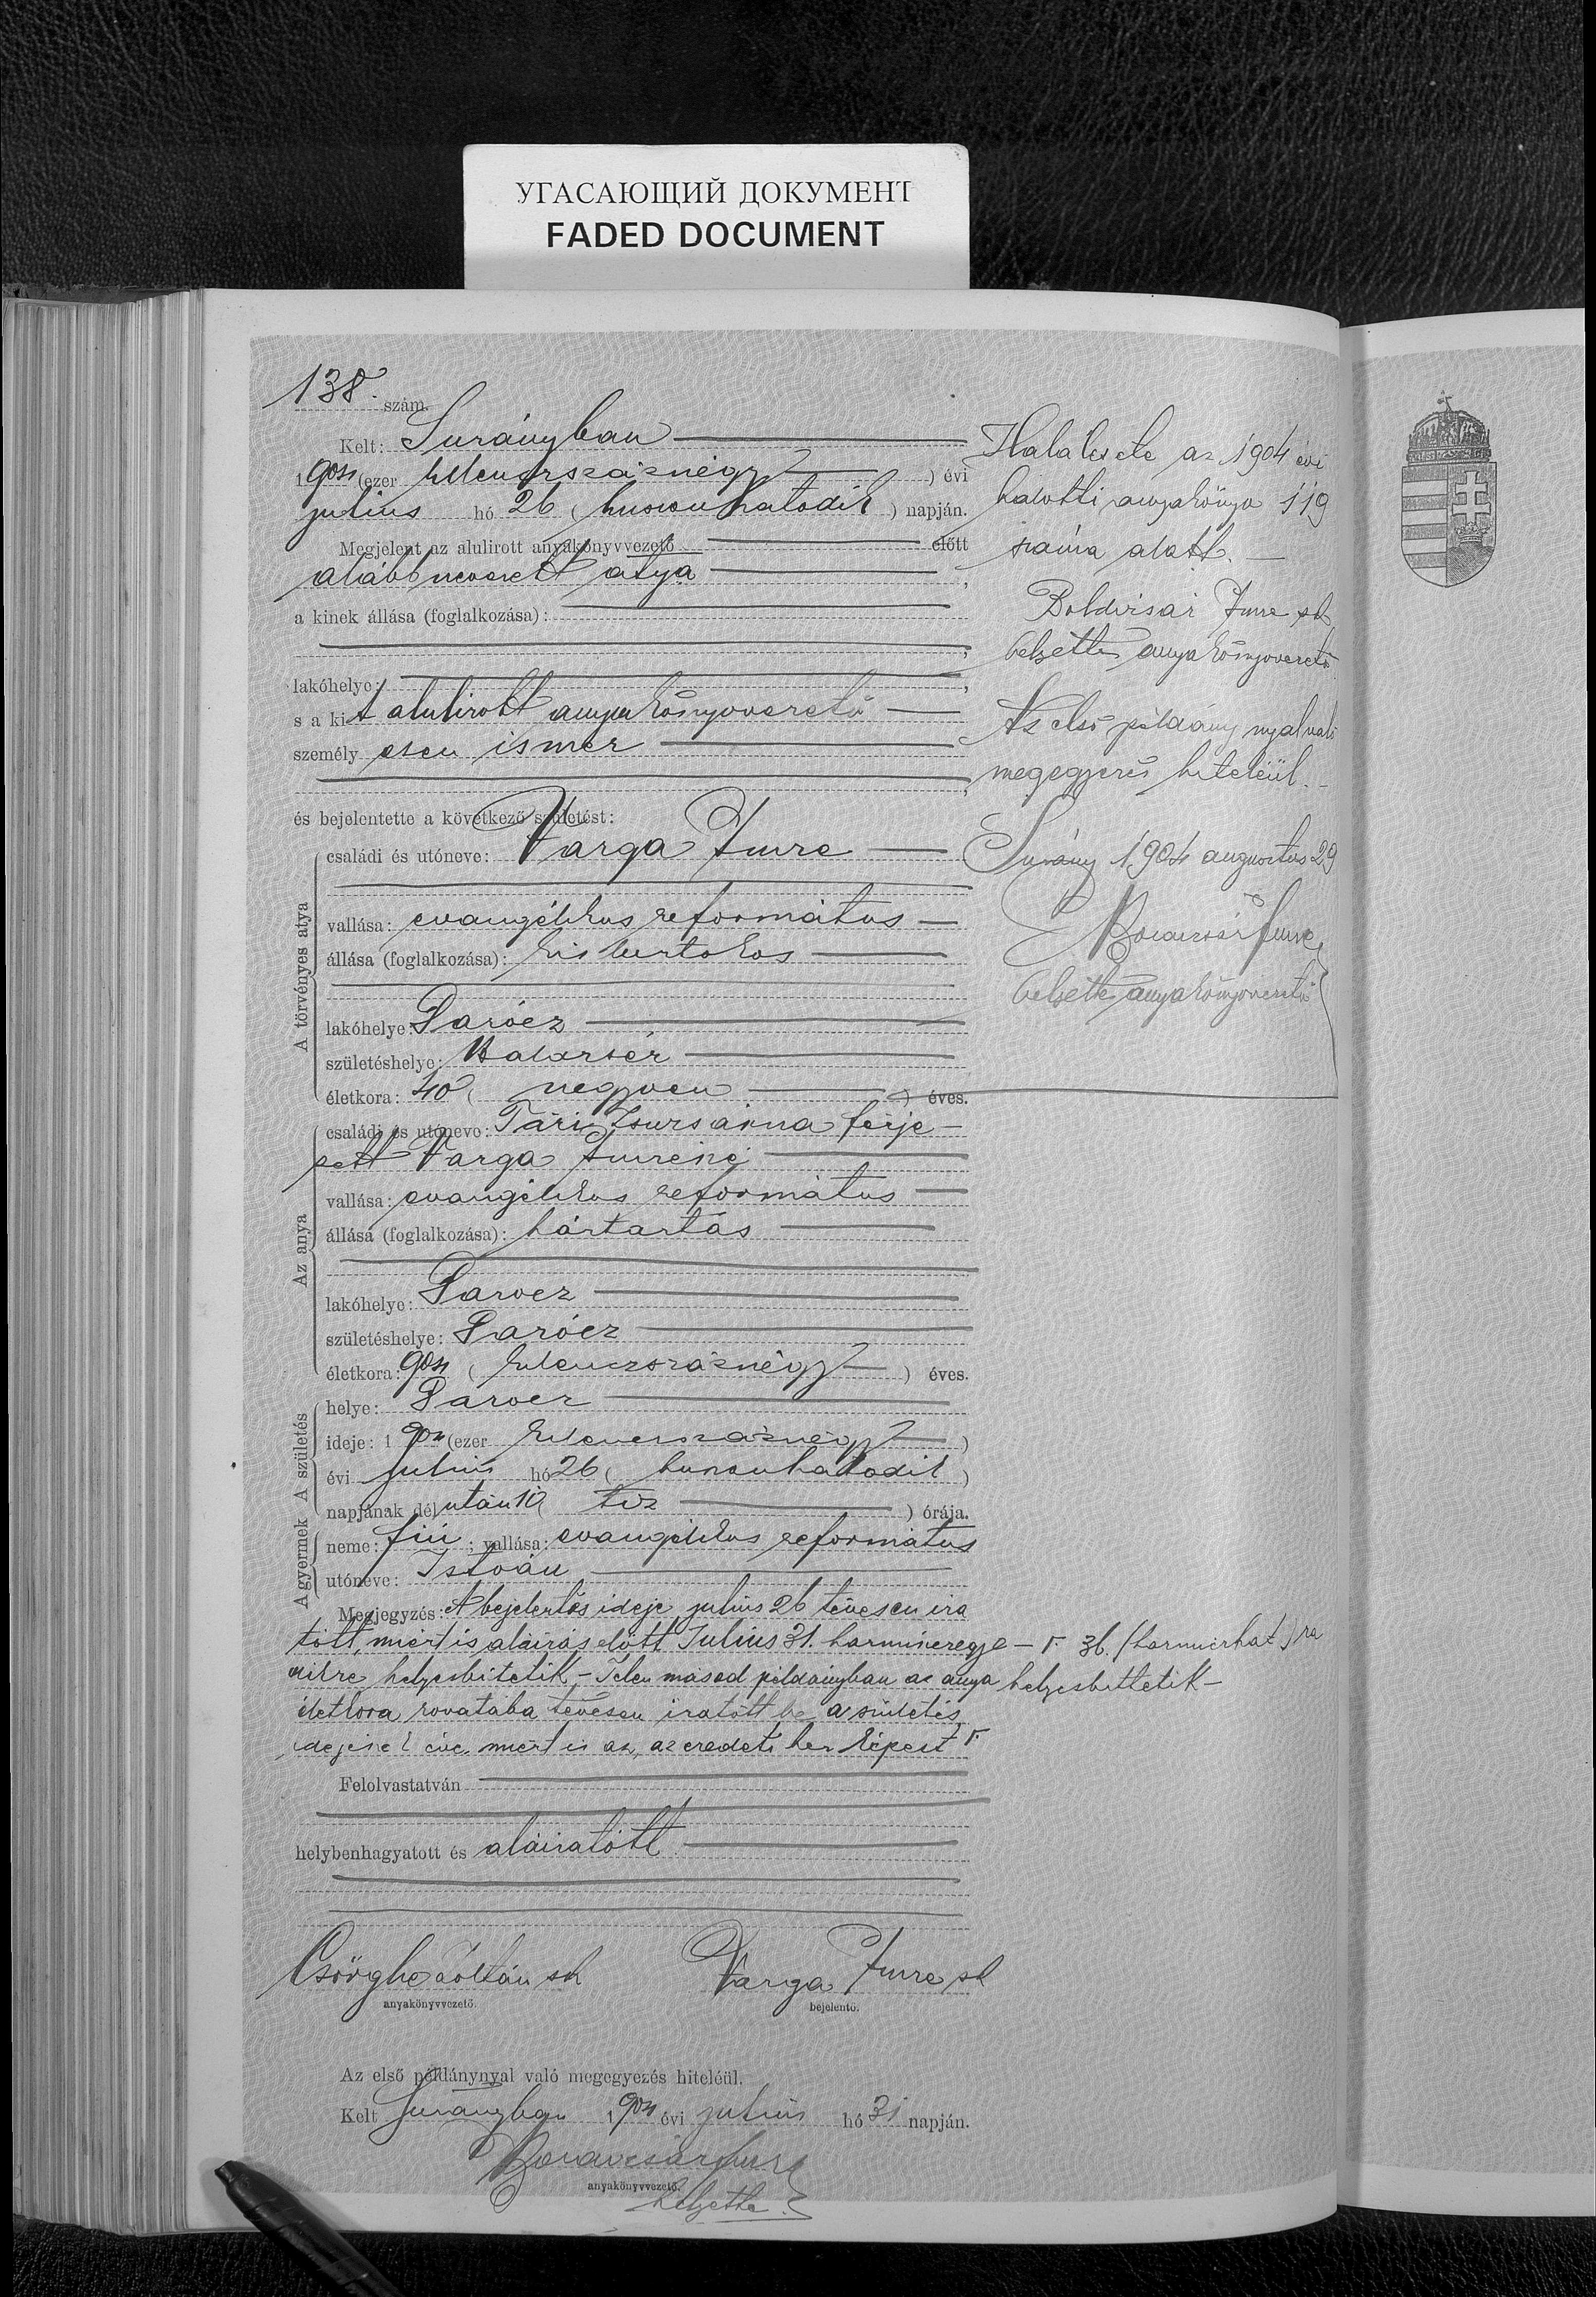 УГАСАЮЩИЙ ДОКУМЕНТ
FADED DOCUMENT
138. szám.
Kelt: Surányban
1904 (ezer kilenczszáznégy) évi
julius hó 26 (huszonhatodik) napján.
Megjelent az alulirott anyakönyvvezető előtt
alább nevezett atya,
a kinek állása (foglalkozása):
lakóhelye:
s a kit alulirott anyakönyvvezető
személyesen ismer
és bejelentette a következő születést:
A törvényes atya
családi és utóneve: Varga Imre
vallása: evangélikus református
állása (foglalkozása): kisbirtokos
lakóhelye: Darócz
születéshelye:
életkora: 40 (negyven) éves.
Az anya
családi és utóneve: Tári Zsuzsánna férje-
zett Varga Imréné
vallása: evangélikus református
állása (foglalkozása): háztartás
lakóhelye: Darócz
születéshelye: Darócz
életkora: 904 (kilenczszáznégy) éves.
A születés
helye: Darócz
ideje: 1904 (ezer kilenczszáznégy)
évi julius hó 26 (huszonhatodik)
napjának délután 10 (tíz) órája.
A gyermek
neme: fiú; vallása: evangélikus református
utóneve: István
Megjegyzés: A bejelentés ideje julius 26 tévesen ira
tott, miért is aláirás előtt Julius 31. harminczegye-
dikre helyesbitetik.- Jelen másod példányban az anya
életkora rovatába tévesen iratott be a születés
idejének éve, miért is az, az eredetihez képest Γ.
Γ. 36. (harminczhat) ra
helyesbittetik-
Felolvastatván
helybenhagyatott és aláiratott
Csörghe Zoltán sk
anyakönyvvezető.
Varga Imre sk
bejelentő.
Az első példánynyal való megegyezés hiteléül.
Kelt Surányban 1904 évi julius hó 31 napján.
anyakönyvvezető.
helyettes
Halálesete az 1904 évi
halotti anyakönyv 119
száma alatt.
Imre sk
helyettes anyakönyvvezető
Az első példány nyal való
megegyezés hiteléül.-
Surány 1904 augusztus 29
Imre
helyettes anyakönyvvezető